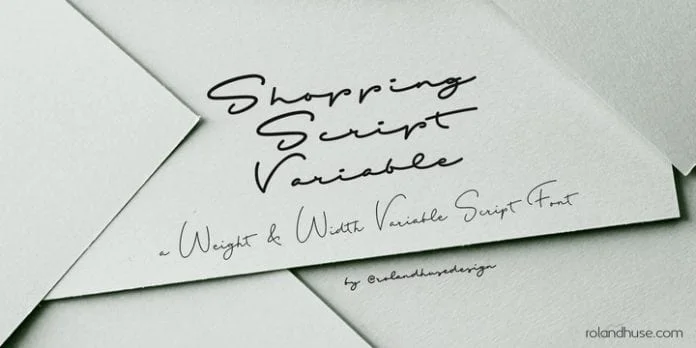 Shopping
Script
Variable
a Weight & Width Variable Script Font
by @rolandhusedesign
rolandhuse.com